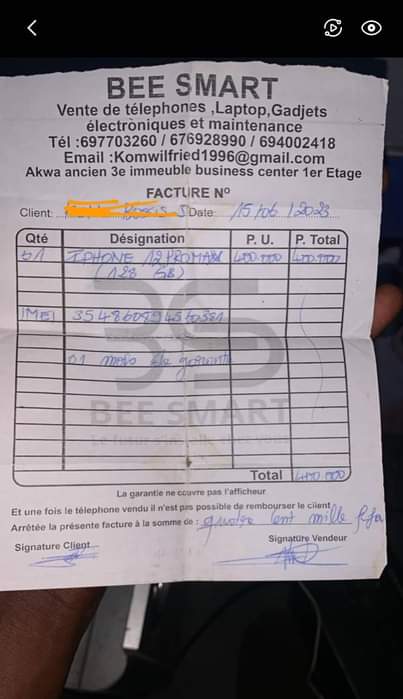 BEE SMART
Vente de télephones ,Laptop,Gadjets
électroniques et maintenance
Tél :697703260 / 676928990 / 694002418
Email :Komwilfried1996@gmail.com
Akwa ancien 3e immeuble business center 1er Etage
FACTURE N°
Client: Date: 15/06/2023
Qté Désignation P. U. P. Total
01 IPHONE 12 PROMAX 400.000 400.000
(128 GB)
IMEI
01 mois de garantie
BEE SMART
Total 400.000
La garantie ne couvre pas l'afficheur
Et une fois le télephone vendu il n'est pas possible de rembourser le client
Arrêtée la présente facture à la somme de : quatre cent mille Fcfa
Signature Client
Signature Vendeur